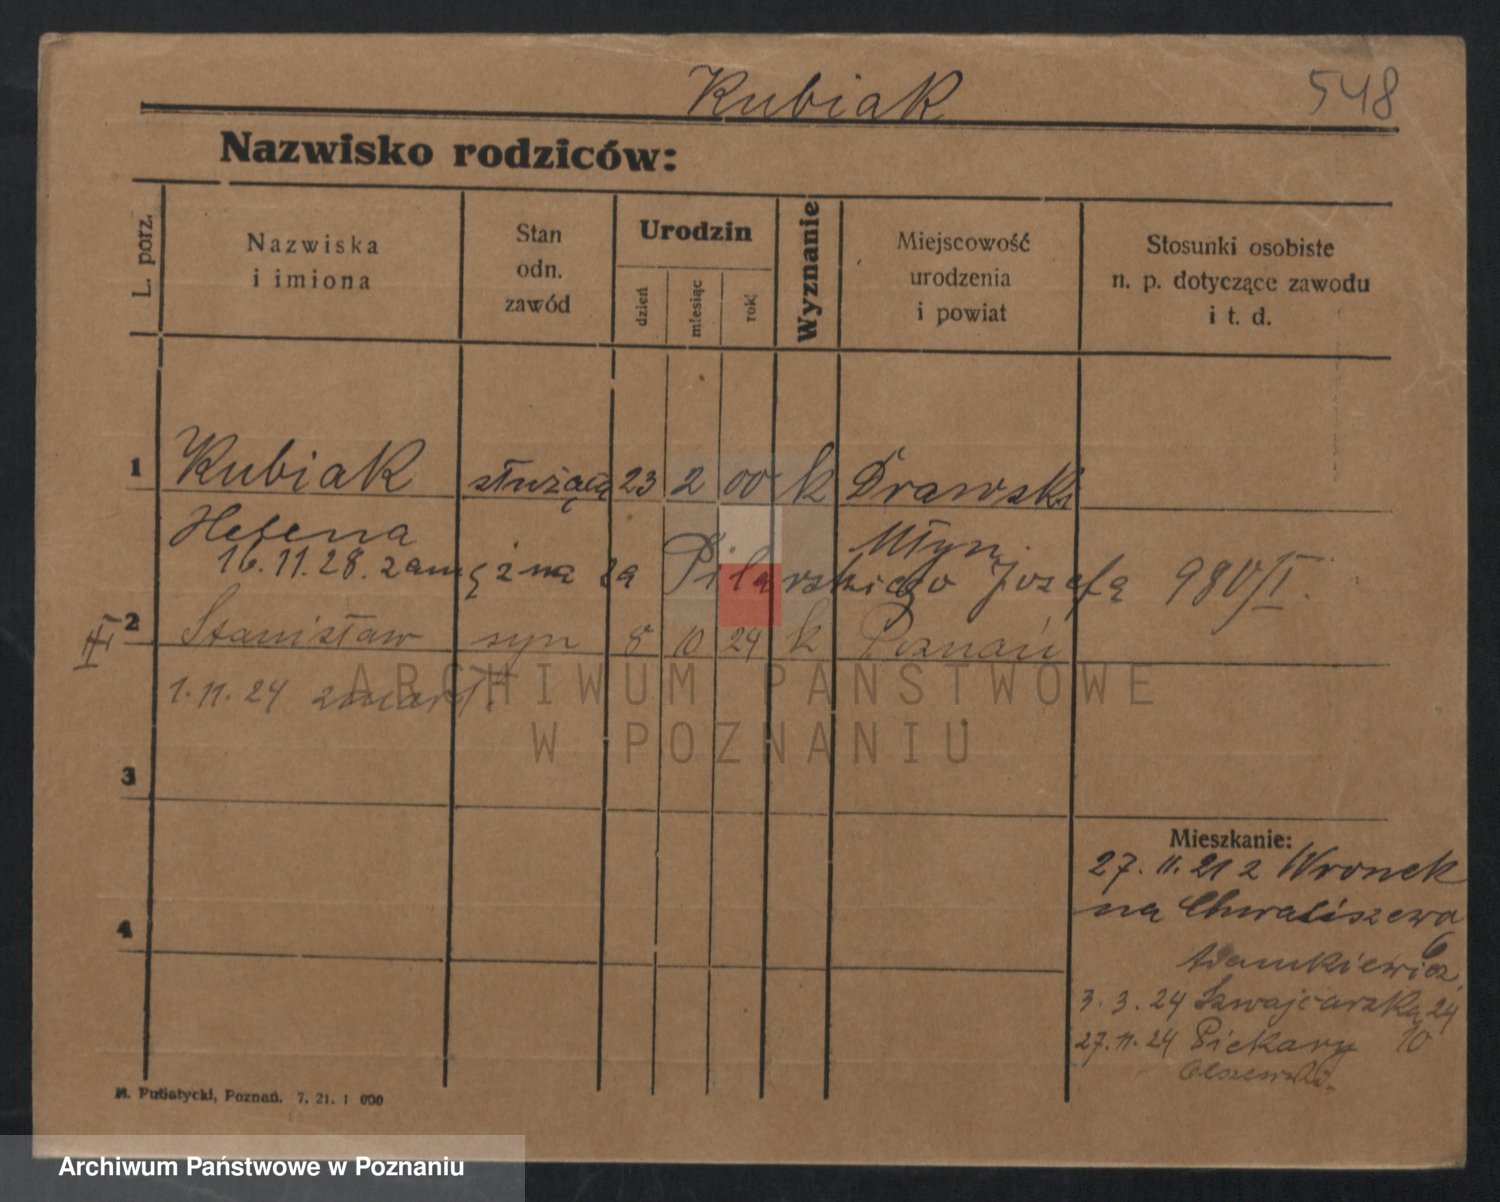 Kubiak 548
Nazwisko rodziców:
L. porz.
Nazwiska
i imiona
Stan
odn.
zawód
Urodzin
dzień
miesiąc
rok
Wyznanie
Miejscowość
urodzenia
i powiat
Stosunki osobiste
n. p. dotyczące zawodu
i t. d.
1 Kubiak służącą 23 2 00 k Drawski
Helena Młyn.
16.11.28. zamężna za Pilarskiego Józefa 980/I.
2 Stanisław syn 8 10 24 k Poznań
III
1.11.24 zmarł.
3
4
Mieszkanie:
27.11.21 z Wronek
na Chwaliszewo
6
Adamkiewicz.
3.3.24 Szwajcarska 24
27.11.24 Piekary 10
Olszewski.
M. Putiatycki, Poznań. 7. 21. 1 000
ARCHIWUM PAŃSTWOWE
W POZNANIU
Archiwum Państwowe w Poznaniu